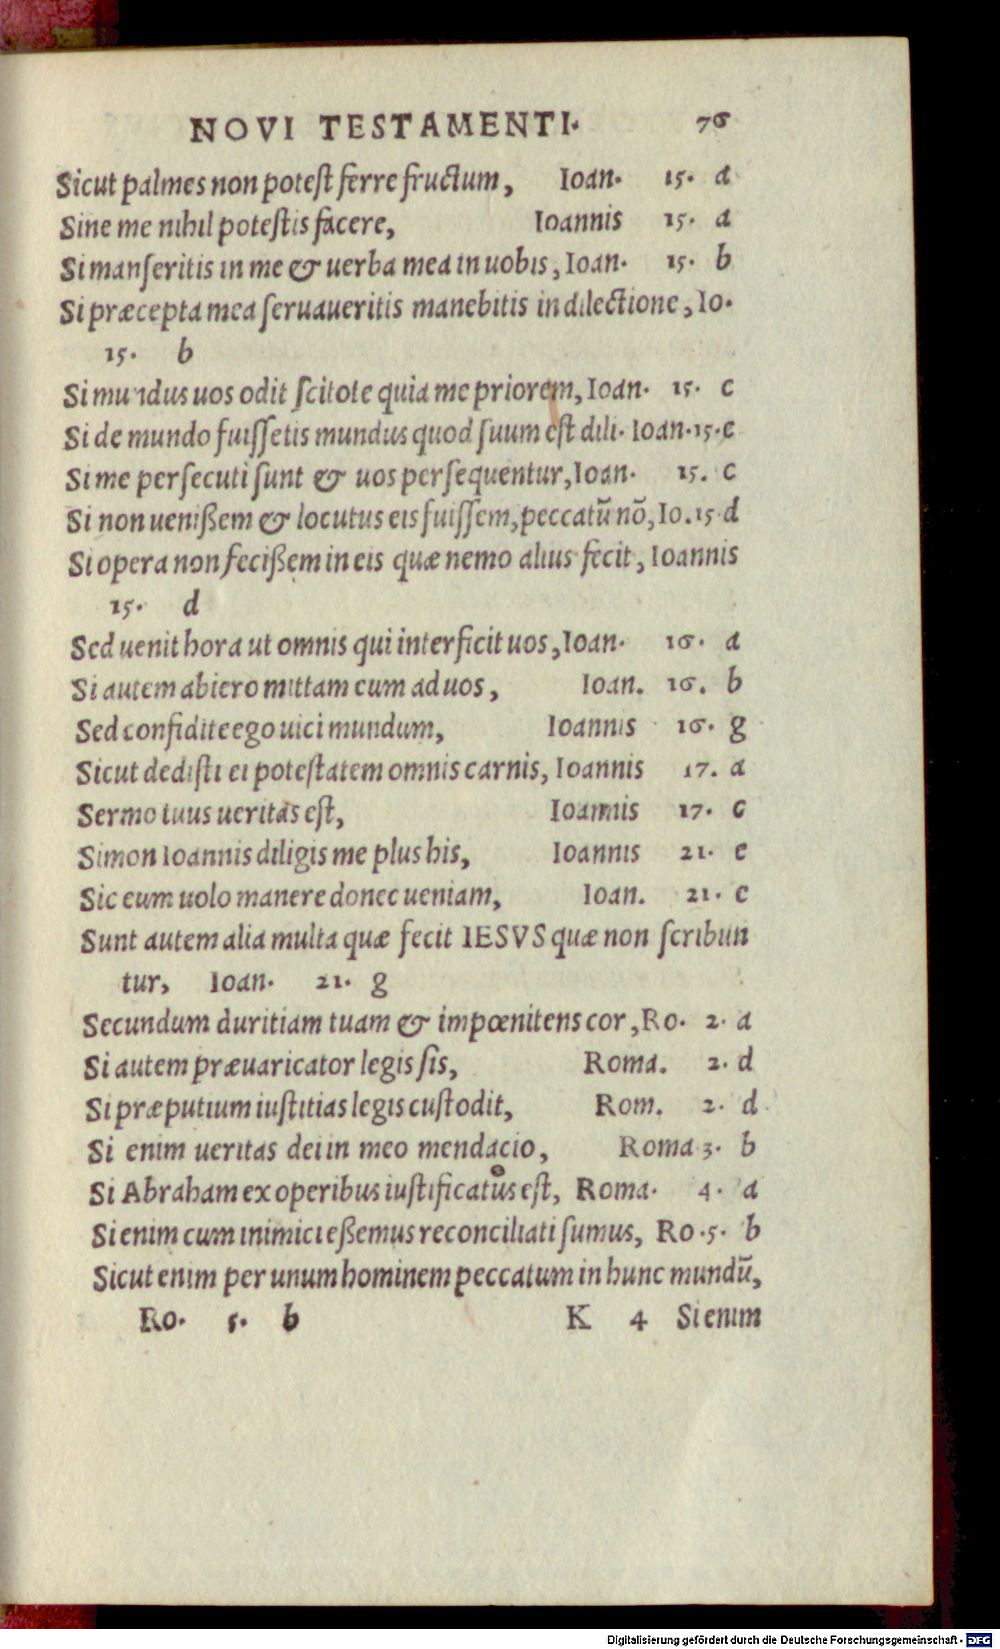 NOVI TESTAMENTI. 76
Sicut palmes non potest ferre fructum, Ioan. 15. a
Sine me nihil potestis facere, Ioannis 15. a
Si manseritis in me & uerba mea in uobis, Ioan. 15. b
Si præcepta mea seruaueritis manebitis in dilectione, Io.
15. b
Si mundus uos odit scitote quia me priorem, Ioan. 15. c
Si de mundo fuissetis mundus quod suum est dili. Ioan. 15. c
Si me persecuti sunt & uos persequentur, Ioan. 15. c
Si non uenißem & locutus eis fuissem, peccatũ nõ, Io. 15 d
Si opera non fecißem in eis quæ nemo alius fecit, Ioannis
15. d
Sed uenit hora ut omnis qui interficit uos, Ioan. 16. a
Si autem abiero mittam eum ad uos, Ioan. 16. b
Sed confidite ego uici mundum, Ioannis 16. g
Sicut dedisti ei potestatem omnis carnis, Ioannis 17. a
Sermo tuus ueritas est, Ioannis 17. c
Simon Ioannis diligis me plus his, Ioannis 21. e
Sic eum uolo manere donec ueniam, Ioan. 21. c
Sunt autem alia multa quæ fecit IESVS quæ non scribun
tur, Ioan. 21. g
Secundum duritiam tuam & impœnitens cor, Ro. 2. a
Si autem præuaricator legis sis, Roma. 2. d
Si præputium iustitias legis custodit, Rom. 2. d
Si enim ueritas dei in meo mendacio, Roma 3. b
Si Abraham ex operibus iustificatus est, Roma. 4. a
Si enim cum inimici eßemus reconciliati sumus, Ro. 5. b
Sicut enim per unum hominem peccatum in hunc mundũ,
Ro. 5. b K 4 Si enim
Digitalisierung gefördert durch die Deutsche Forschungsgemeinschaft - DFG